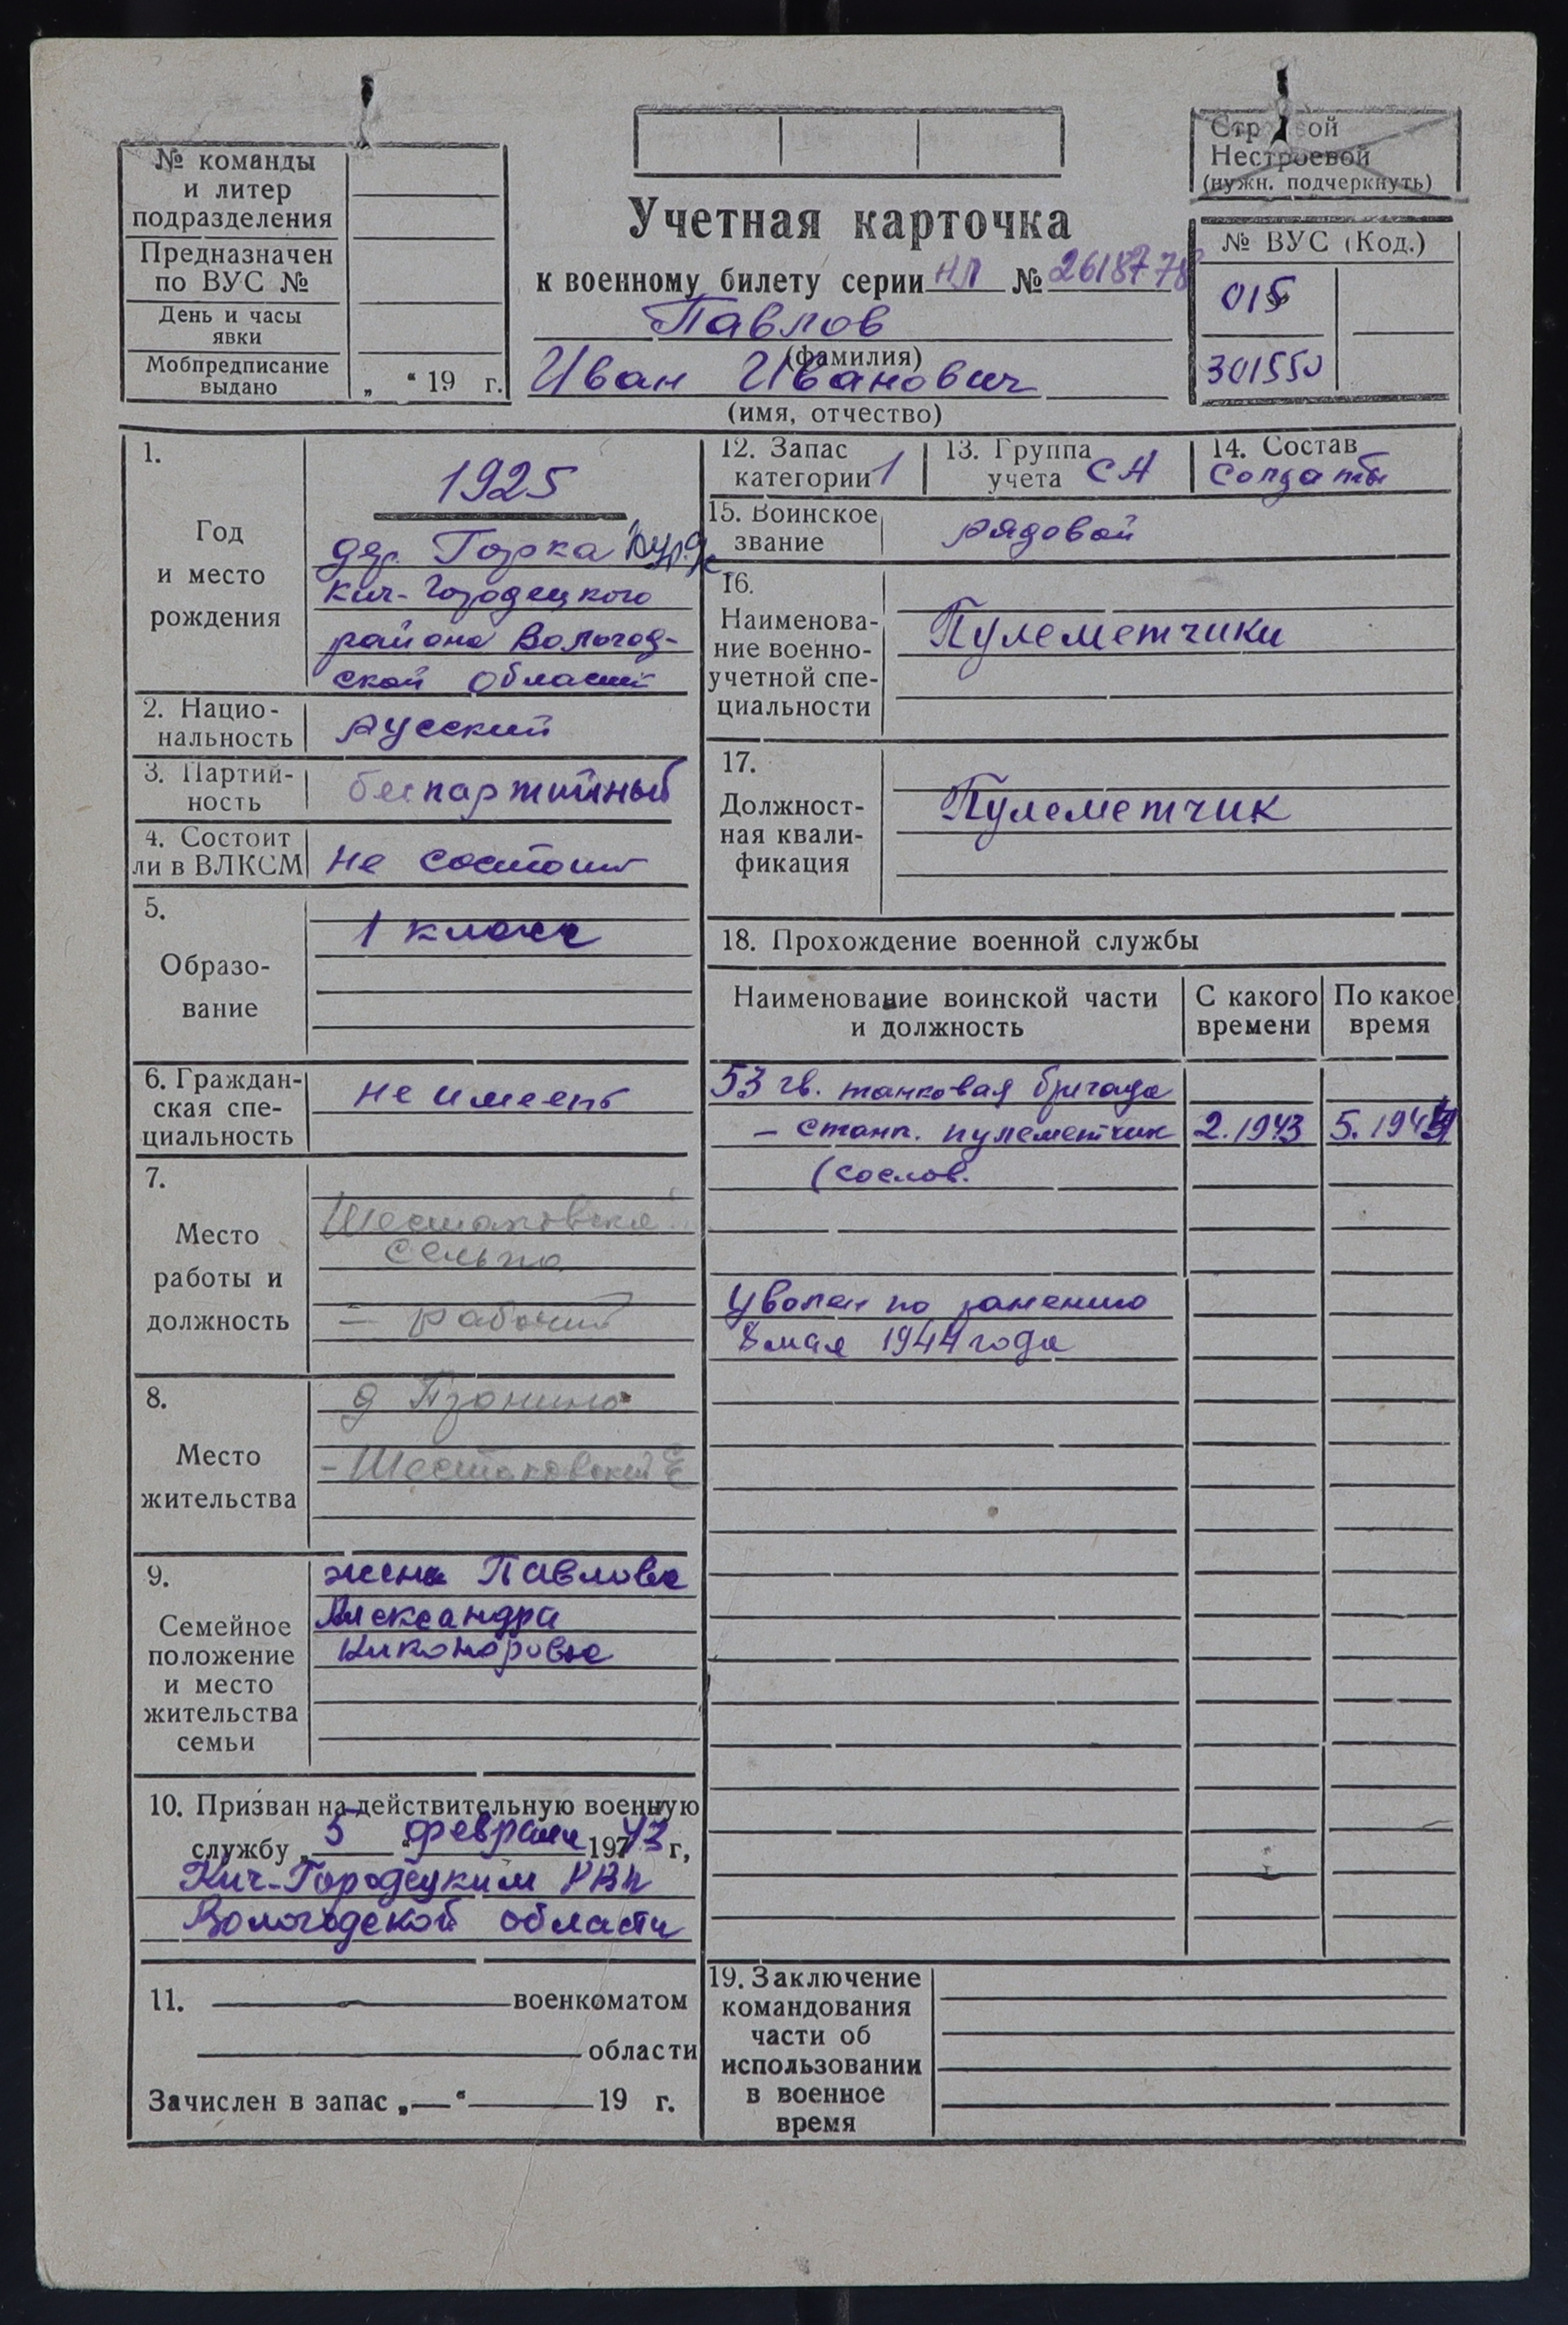 № команды
и литер
подразделения
Предназначен
по ВУС №
День и часы
явки
Мобпредписание
выдано
„ “ 19 г.
Учетная карточка
к военному билету серии НЛ №
Павлов
(фамилия)
Иван Иванович
(имя, отчество)
Нестроевой
(нужн. подчеркнуть)
№ ВУС (Код.)
015
301550
1.
Год
и место
рождения
1925
дер. Горка
Кич-Городецкого
района Вологод-
ской области
2. Нацио-
нальность
русский
3. Партий-
ность
беспартийный
4. Состоит
ли в ВЛКСМ
не состоит
5.
Образо-
вание
1 класс
6. Граждан-
ская спе-
циальность
не имеет
7.
Место
работы и
должность
Шестаковское
сельпо
– рабочий
8.
Место
жительства
д
– Шестаковский
9.
Семейное
положение
и место
жительства
семьи
жена Павлова
Александра
Никоноровна
10. Призван на действительную военную
службу „ 5 “ февраля 1943 г,
Кич-Городецким РВК
Вологодской области
11. военкоматом
области
Зачислен в запас „—“ 19 г.
12. Запас
категории 1
13. Группа
учета СА
14. Состав
солдаты
15. Воинское
звание
рядовой
16.
Наименова-
ние военно-
учетной спе-
циальности
Пулеметчики
17.
Должност-
ная квали-
фикация
Пулеметчик
18. Прохождение военной службы
Наименование воинской части
и должность
С какого
времени
По какое
время
53 гв. танковая бригада
– станк. пулеметчик 2.1943 5.1944
(сослов.
Уволен по ранению
8 мая 1944 года
19. Заключение
командования
части об
использовании
в военное
время